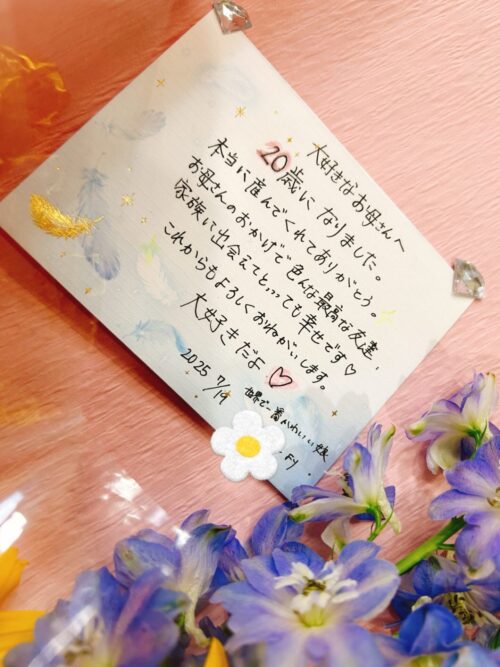 大好きなお母さんへ
20歳になりました。
本当に産んでくれてありがとう。
お母さんのおかげで色んな最高な友達、
家族に出会えてと、、、ても幸せです♡
これからもよろしくおねがいします。
大好きだよ♡
2025 7/19
世界で一番かわいい娘